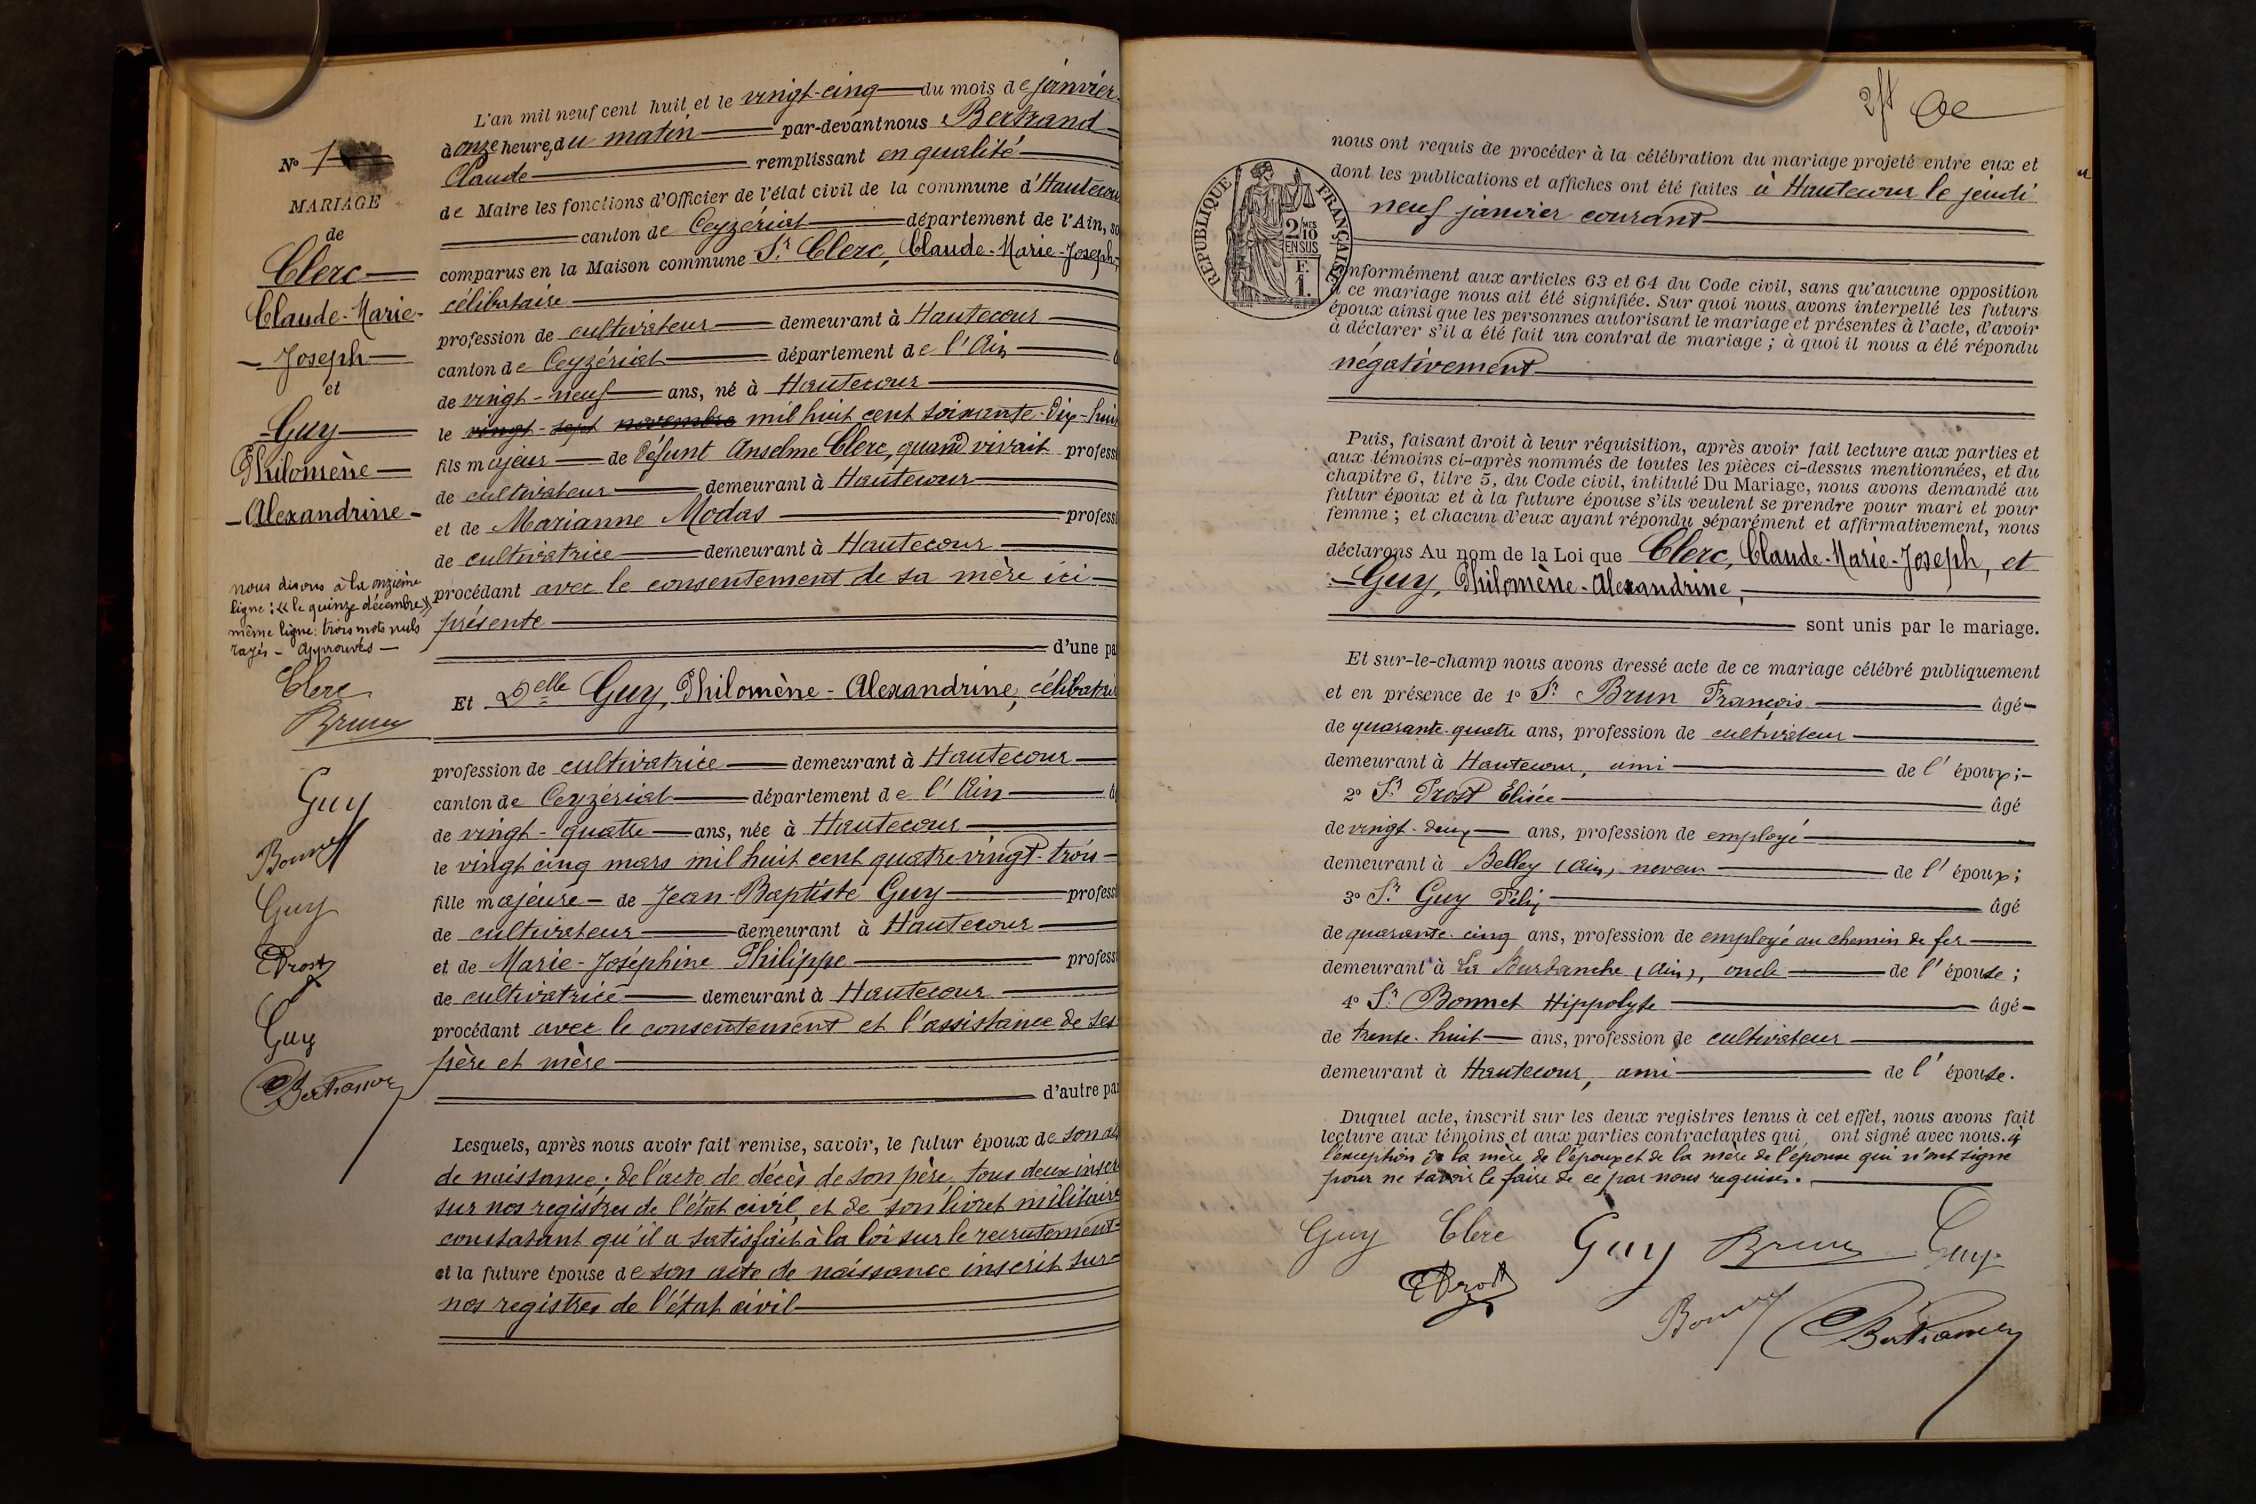 N° 1
MARIAGE
de
Clerc
Claude-Marie-
Joseph
et
Guy
Philomène
Alexandrine
nous disons à la onzième
ligne : « le quinze décembre »
même ligne : trois mots nuls
rayés - approuvés
Clerc
Brun
Guy
Bonnet
Guy
EProst
Guy
CBertrand
L'an mil neuf cent huit et le vingt-cinq du mois de janvier
à onze heures du matin par-devant nous Bertrand
Claude remplissant en qualité
de Maire les fonctions d'Officier de l'état civil de la commune d'Hautecour
canton de Ceyzériat département de l'Ain, so
comparus en la Maison commune Sr Clerc, Claude-Marie-Joseph,
célibataire
profession de cultivateur demeurant à Hautecour
canton de Ceyzériat département de l'Ain â
de vingt-neuf ans, né à Hautecour
le vingt-sept novembre mil huit cent soixante-dix-huit
fils majeur de défunt Anselme Clerc, quand vivait professi
de cultivateur demeurant à Hautecour
et de Marianne Modas professi
de cultivatrice demeurant à Hautecour
procédant avec le consentement de sa mère ici
présente
d'une pa
Et Delle Guy, Philomène-Alexandrine, célibatrie
profession de cultivatrice demeurant à Hautecour
canton de Ceyzériat département de l'Ain â
de vingt-quatre ans, née à Hautecour
le vingt cinq mars mil huit cent quatre-vingt-trois
fille majeure de Jean-Baptiste Guy professi
de cultivateur demeurant à Hautecour
et de Marie-Joséphine Philippe professi
de cultivatrice demeurant à Hautecour
procédant avec le consentement et l'assistance de ses
père et mère
d'autre par
Lesquels, après nous avoir fait remise, savoir, le futur époux de son ac
de naissance ; de l'acte de décès de son père, tous deux inscr
sur nos registres de l'état civil, et de son livret militaire
constatant qu'il a satisfait à la loi sur le recrutement
et la future épouse de son acte de naissance inscrit sur
nos registres de l'état civil
2ft
RÉPUBLIQUE FRANÇAISE
2/10 MES
EN SUS
F.
1.
nous ont requis de procéder à la célébration du mariage projeté entre eux et
dont les publications et affiches ont été faites à Hautecour le jeudi
neuf janvier courant
onformément aux articles 63 et 64 du Code civil, sans qu'aucune opposition
à ce mariage nous ait été signifiée. Sur quoi nous avons interpellé les futurs
époux ainsi que les personnes autorisant le mariage et présentes à l'acte, d'avoir
à déclarer s'il a été fait un contrat de mariage ; à quoi il nous a été répondu
négativement
Puis, faisant droit à leur réquisition, après avoir fait lecture aux parties et
aux témoins ci-après nommés de toutes les pièces ci-dessus mentionnées, et du
chapitre 6, titre 5, du Code civil, intitulé Du Mariage, nous avons demandé au
futur époux et à la future épouse s'ils veulent se prendre pour mari et pour
femme ; et chacun d'eux ayant répondu séparément et affirmativement, nous
déclarons Au nom de la Loi que Clerc, Claude-Marie-Joseph, et
Guy, Philomène-Alexandrine,
sont unis par le mariage.
Et sur-le-champ nous avons dressé acte de ce mariage célébré publiquement
et en présence de 1° Sr Brun François âgé
de quarante-quatre ans, profession de cultivateur
demeurant à Hautecour, ami de l'époux ;
2° Sr Prost Élisée âgé
de vingt-deux ans, profession de employé
demeurant à Belley (Ain), neveu de l'époux ;
3° Sr Guy Félix âgé
de quarante-cinq ans, profession de employé au chemin de fer
demeurant à La Burbanche (Ain), oncle de l'épouse ;
4° Sr Bonnet Hippolyte âgé
de trente-huit ans, profession de cultivateur
demeurant à Hautecour, ami de l'épouse.
Duquel acte, inscrit sur les deux registres tenus à cet effet, nous avons fait
lecture aux témoins et aux parties contractantes qui ont signé avec nous. à
l'exception de la mère de l'époux et de la mère de l'épouse qui n'ont signé
pour ne savoir le faire de ce par nous requises.
Guy Clerc Guy Brun Guy
EProst
Bonnet CBertrand